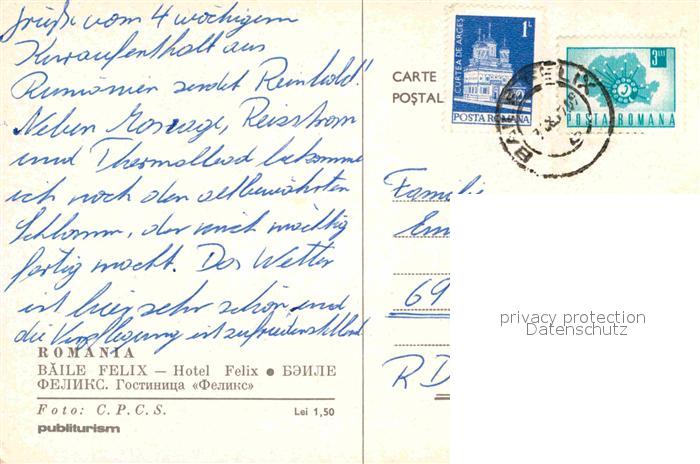 Grüße vom 4 wöchigem
Kuraufenthalt aus
Rumänien sendet Reinhold!
Neben Massage, Reizstrom
und Thermalbad bekomme
ich noch den altbewährten
Schlamm, der mich mächtig
fertig macht. Das Wetter
ist hier sehr schön und
die Verpflegung ist zufriedenstellend
ROMANIA
BĂILE FELIX — Hotel Felix ● БЭИЛЕ
ФЕЛИКС. Гостиница «Феликс»
Foto: C.P.C.S. Lei 1,50
publiturism
CARTE
POŞTAL
1L
CURTEA DE ARGEŞ
POSTA ROMANA
3 LEI
POSTA ROMANA
BAILE FELIX
Familie
Em
69
RD
privacy protection
Datenschutz